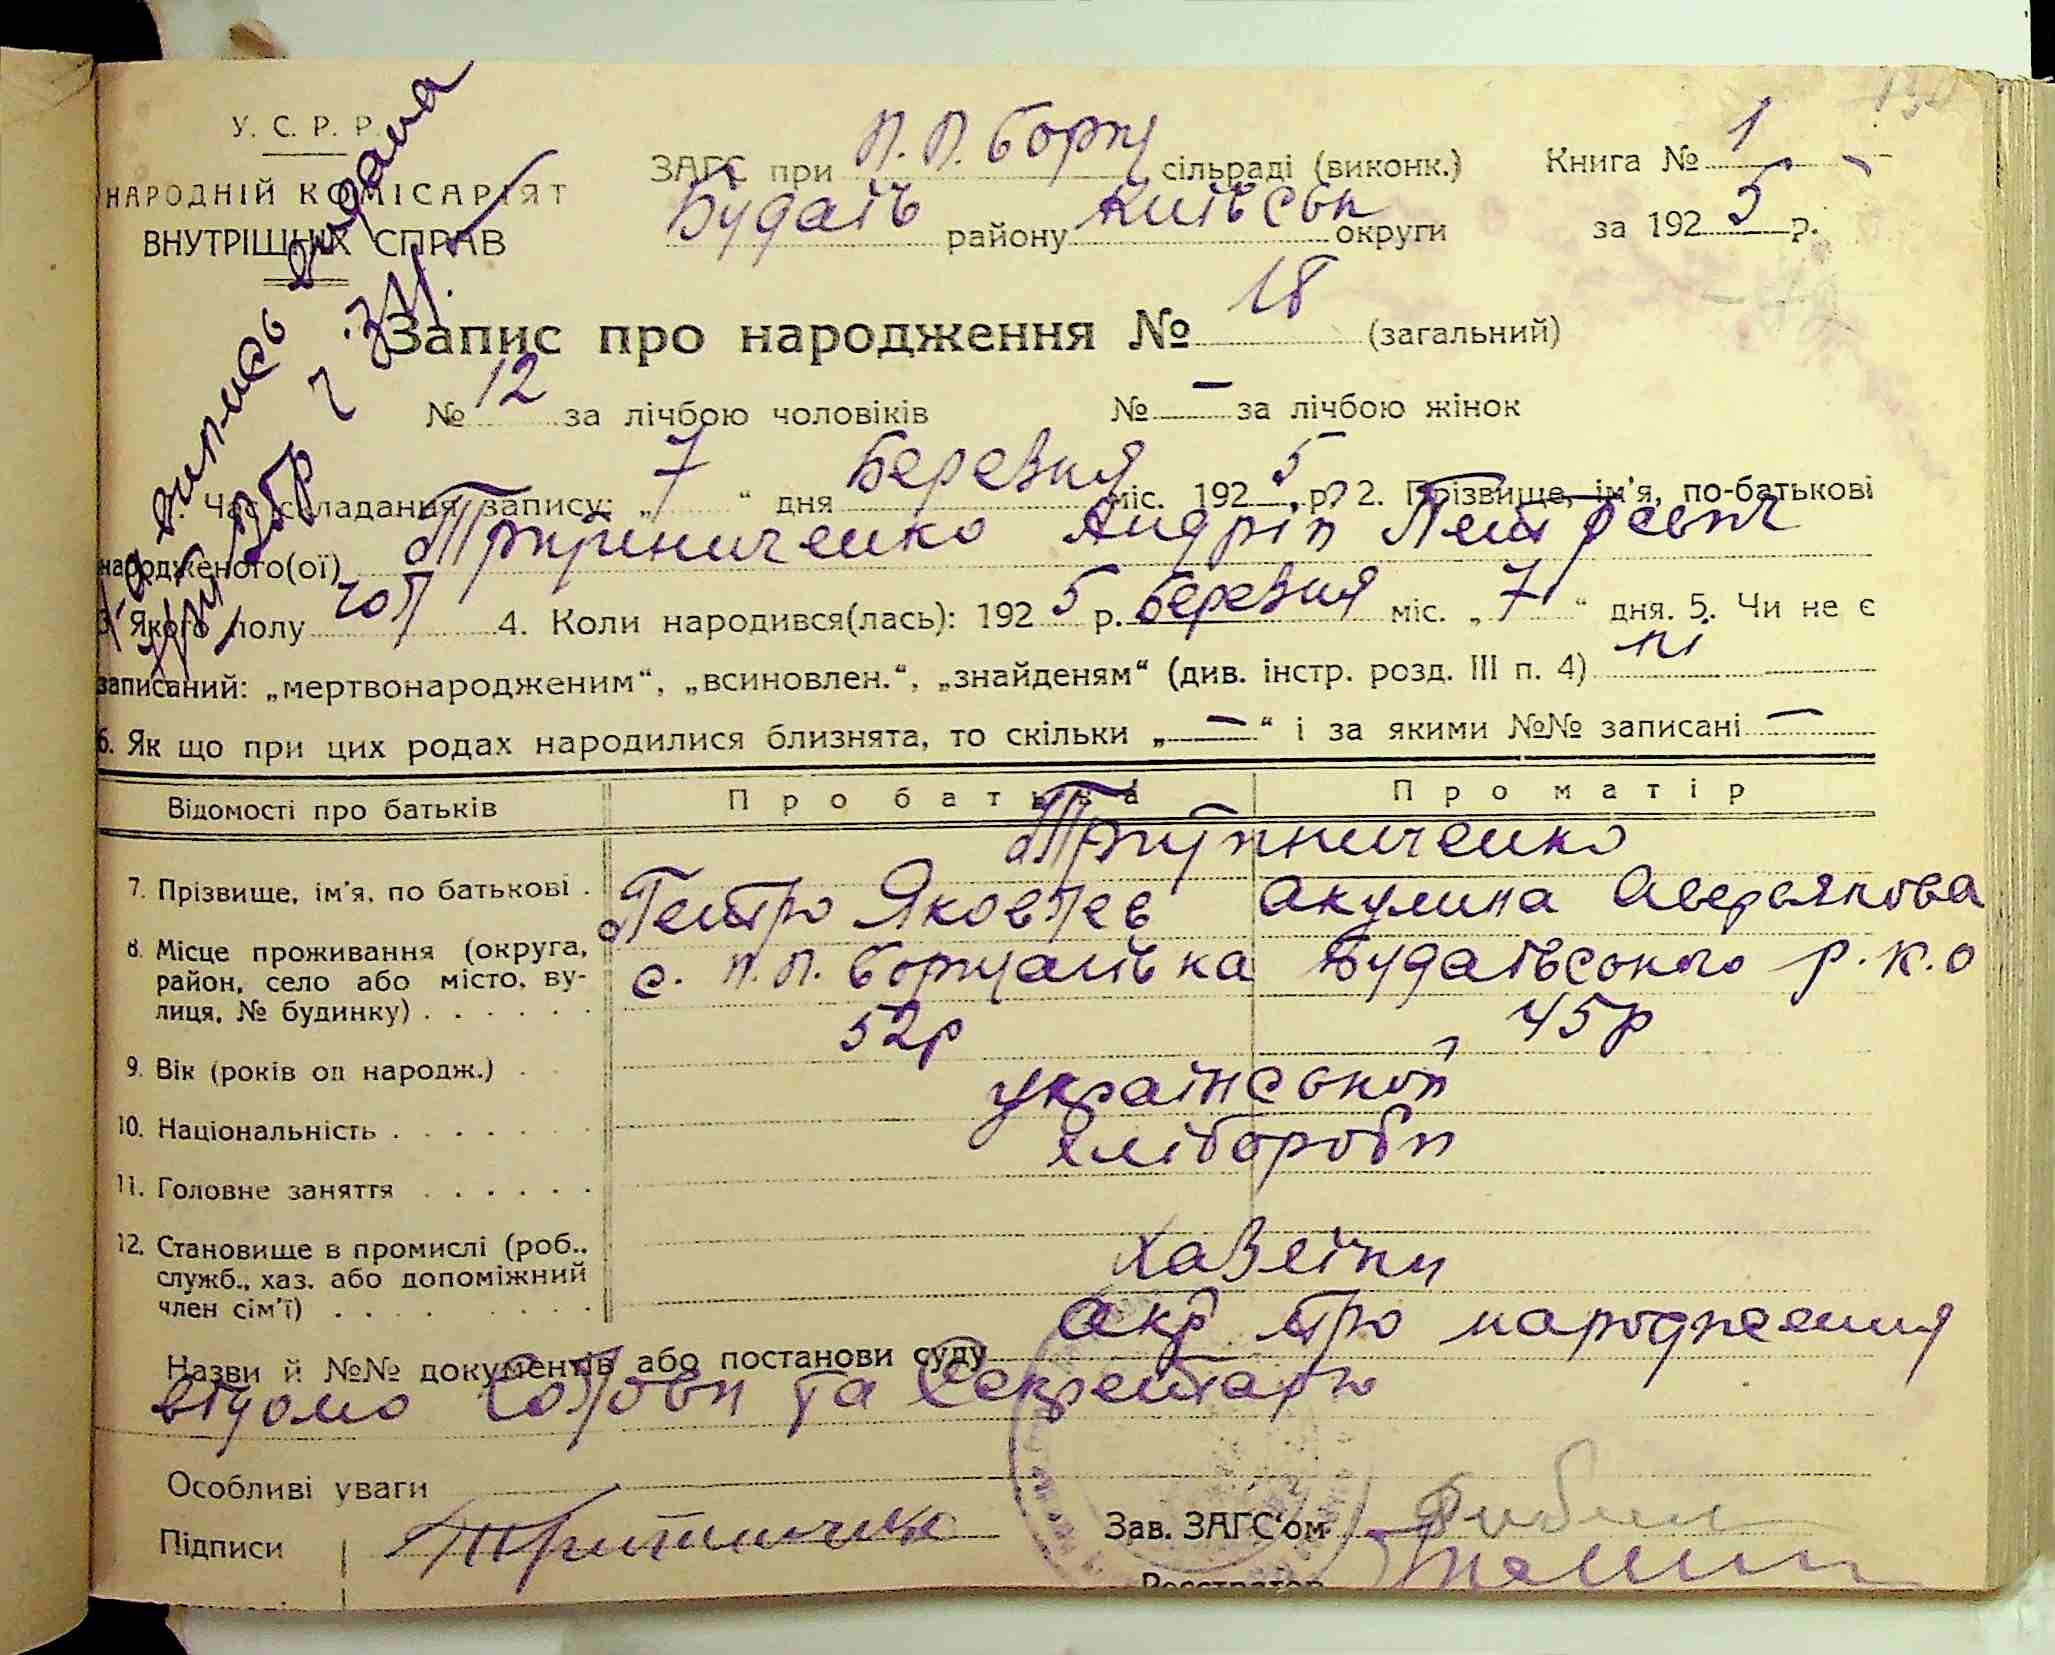 У. С. Р. Р.
НАРОДНІЙ КОМІСАРІЯТ
ВНУТРІШНІХ СПРАВ
ЗАГС при П.П. Борщ сільраді (виконк.)
Будаїв району Київськ округи
Книга № 1
за 1925 р.
випись видана
Запис про народження № 18 (загальний)
№ 12 за лічбою чоловіків № — за лічбою жінок
1. Час складання запису: „ 7 “ дня Березня міс. 1925 р. 2. Прізвище, ім'я, по-батькові
народженого(ої) Андрій Петрович
3. Якого полу чол 4. Коли народився(лась): 1925 р. Березня міс. „ 7 “ дня. 5. Чи не є
записаний: „мертвонародженим“, „всиновлен.“, „знайденям“ (див. інстр. розд. III п. 4) ні
6. Як що при цих родах народилися близнята, то скільки „ — “ і за якими №№ записані —
Відомості про батьків Про батька Про матір
7. Прізвище, ім'я, по батькові . Петро Яковлев Акулина Аверьянова
8. Місце проживання (округа, район, село або місто, вулиця, № будинку) . . . . . . с. П.П. Борщагівка Будаївського р. К.о
9. Вік (років од народж.) . 52р 45р
10. Національність . . . . . . української
11. Головне заняття . . . . . . хлібороби
12. Становище в промислі (роб., служб., хаз. або допоміжний член сім'ї) . . . . . . . . хазеїни
Назви й №№ документів або постанови суду акт про народження
відомо голови та секретарю
Особливі уваги
Підписи
Зав. ЗАГС'ом
Реєстратор